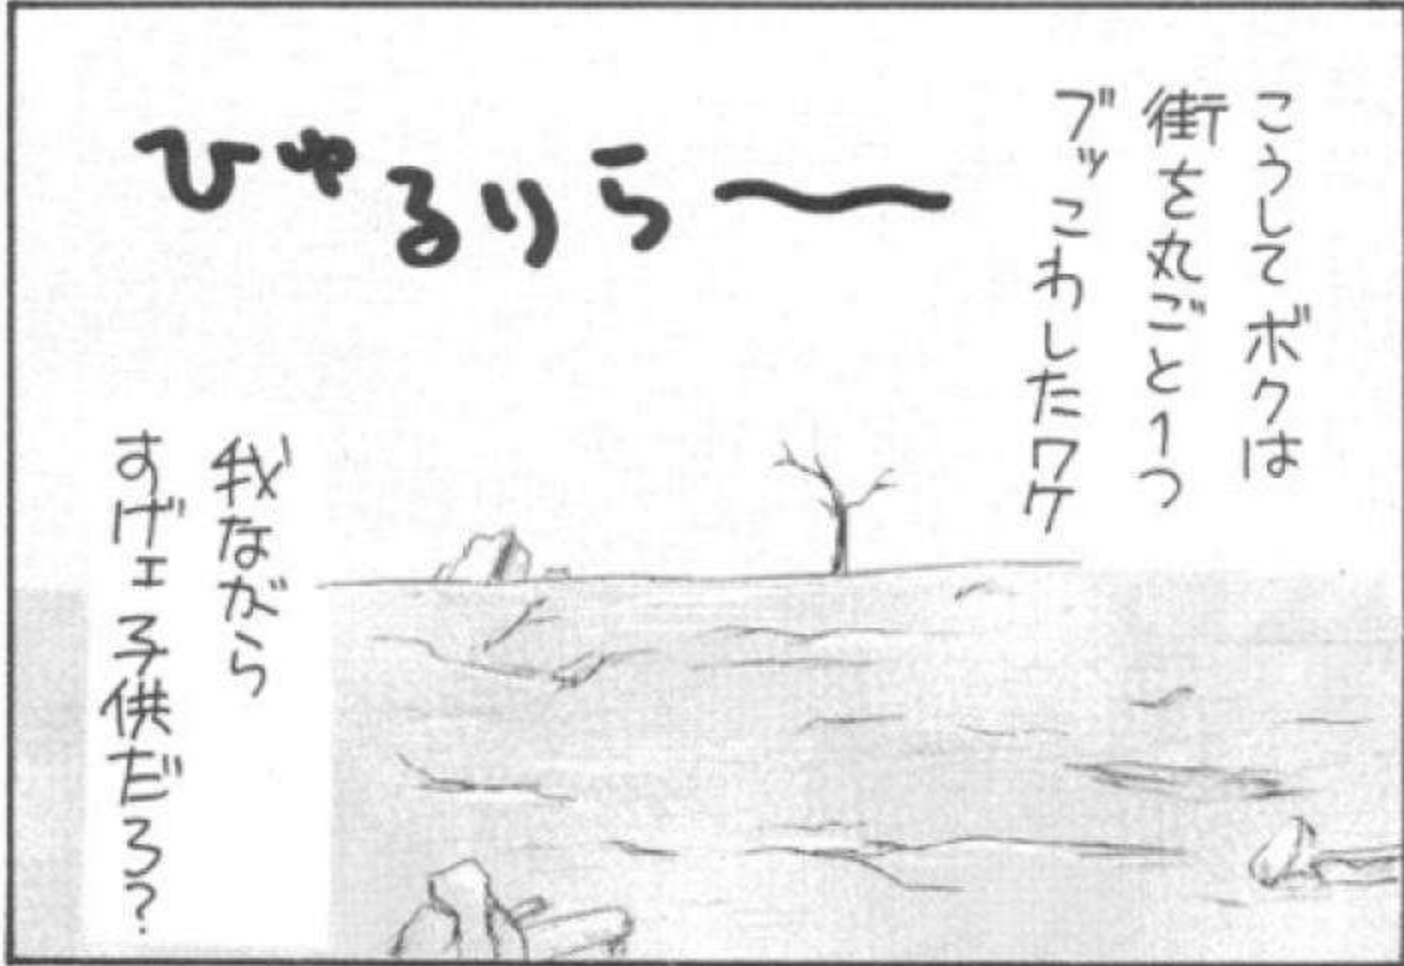 こうしてボクは
街を丸ごと1つ
ブッこわしたワケ
ひゅるりら〜
我ながら
すげェ子供だろ?